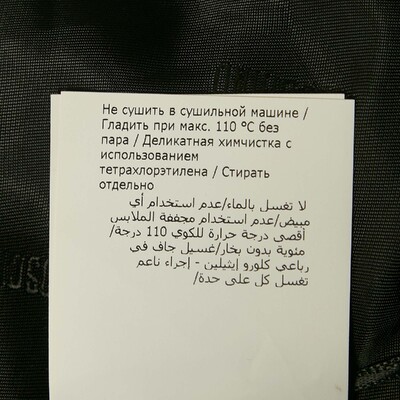 Не сушить в сушильной машине /
Гладить при макс. 110 °C без
пара / Деликатная химчистка с
использованием
тетрахлорэтилена / Стирать
отдельно
لا تغسل بالماء/عدم استخدام أي
مبيض/عدم استخدام مجففة الملابس
/أقصى درجة حرارة للكوي 110 درجة
مئوية بدون بخار/غسيل جاف في
رباعي كلورو إيثيلين - إجراء ناعم
تغسل كل على حدة/